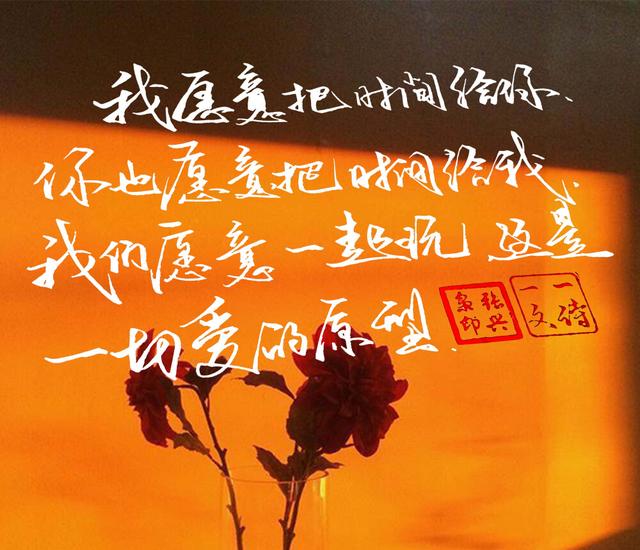 我愿意把时间给你、
你也愿意把时间给我、
我们愿意一起玩 这是
一切爱的原型.
张兴枭印
一诗一文